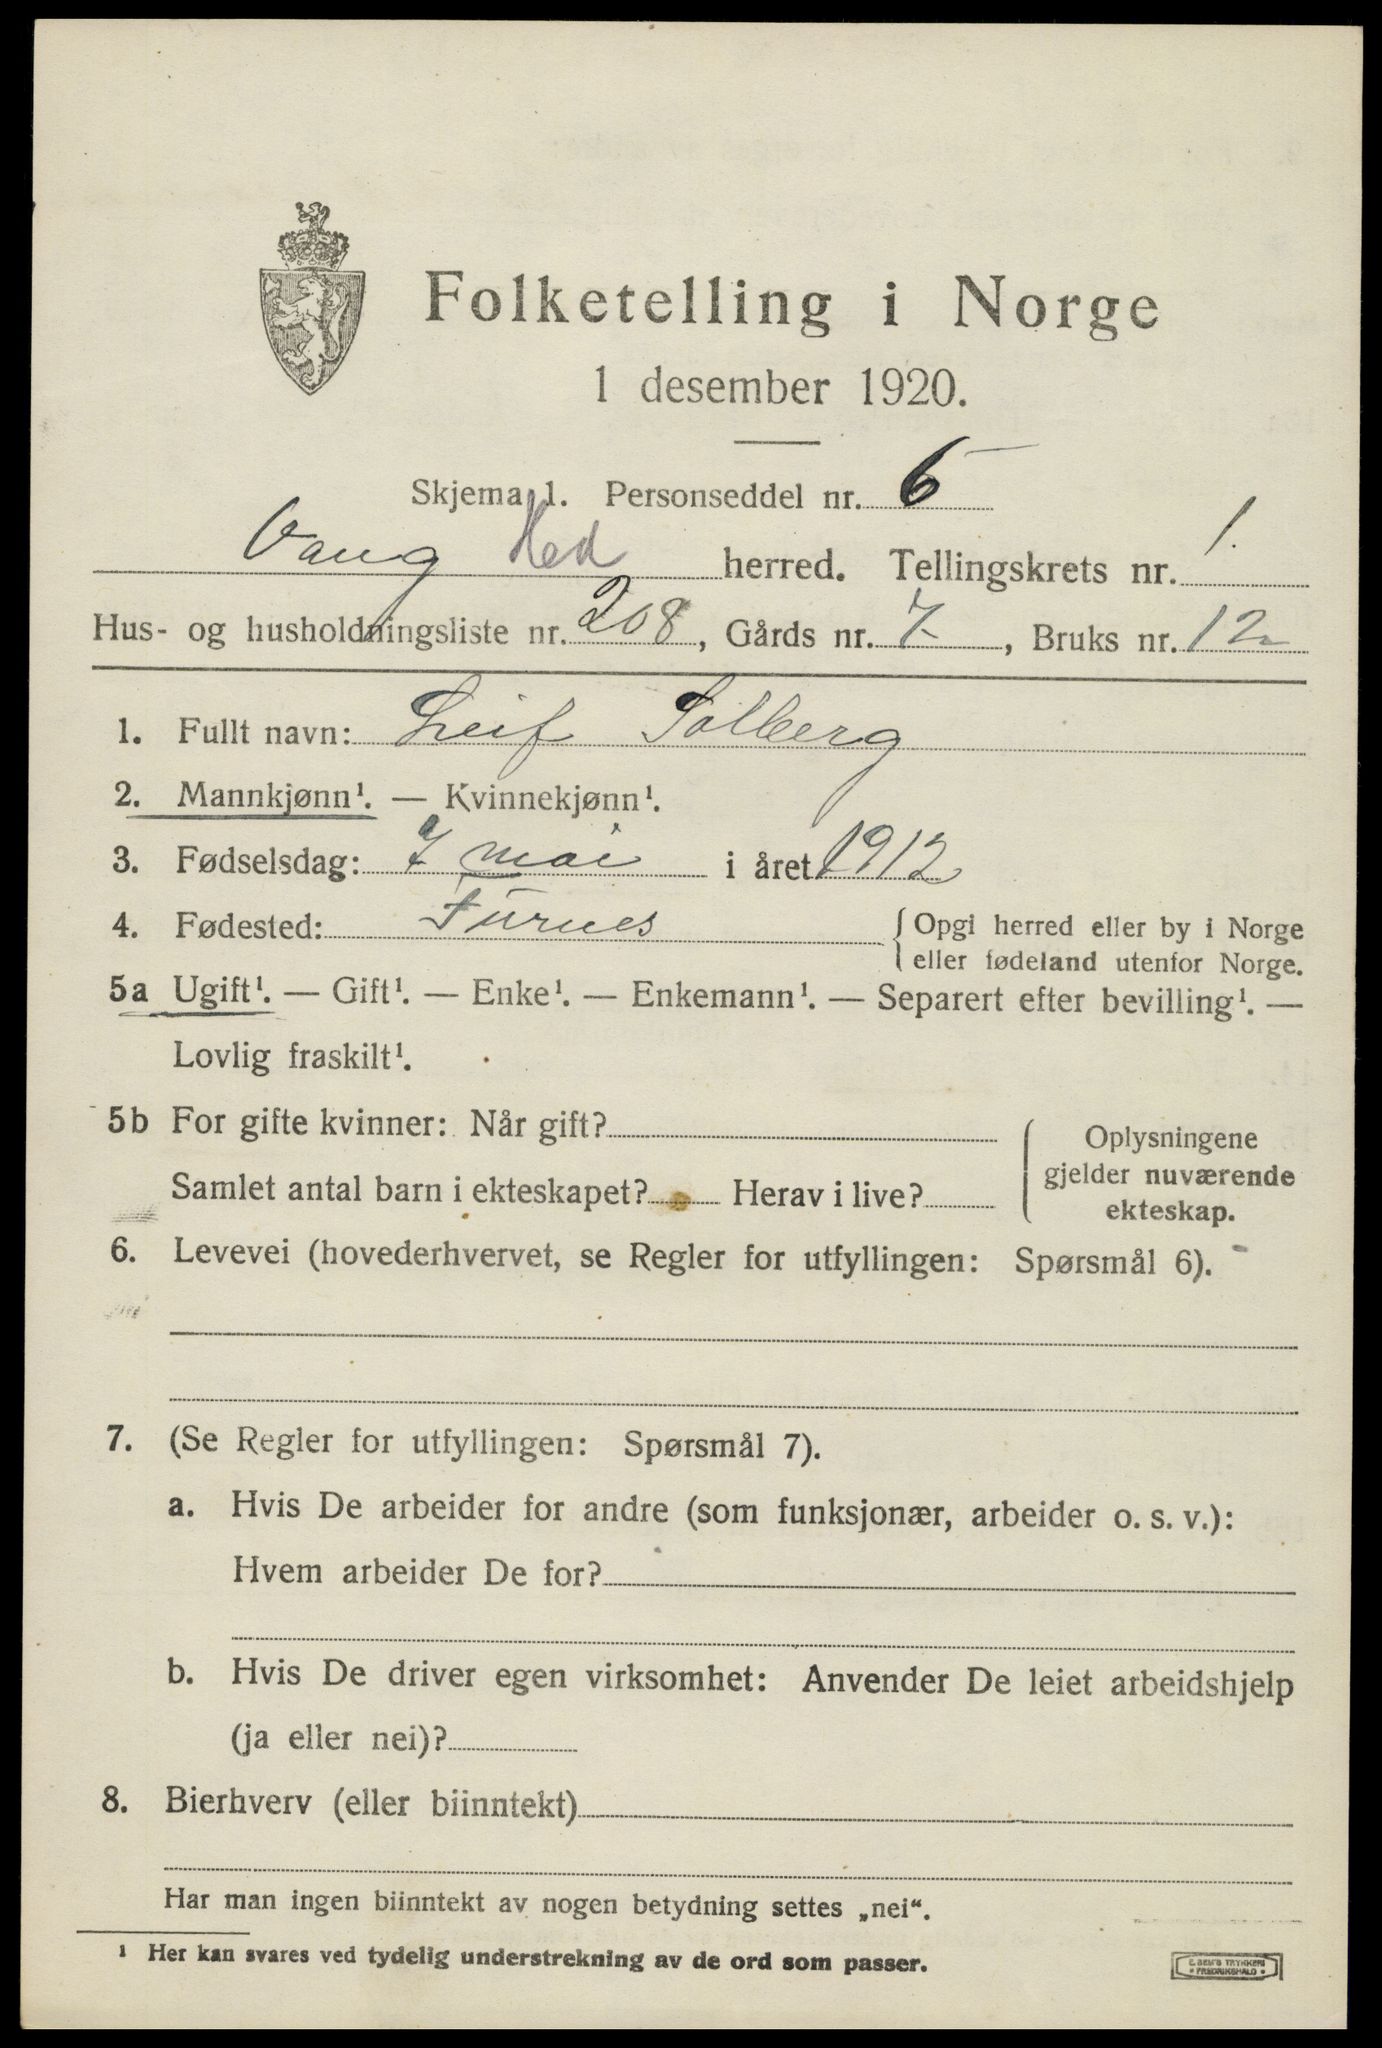 Folketelling i Norge
1 desember 1920.
Skjema 1. Personseddel nr. 6
Vang Hed herred. Tellingskrets nr. 1.
Hus- og husholdningsliste nr. 208, Gårds nr. 7, Bruks nr. 12
1. Fullt navn: Leif Solberg
2. Mannkjønn¹. — Kvinnekjønn¹.
3. Fødselsdag: 7 mai i året 1912
4. Fødested: Furnes { Opgi herred eller by i Norge
eller fødeland utenfor Norge.
5a Ugift¹. — Gift¹. — Enke¹. — Enkemann¹. — Separert efter bevilling¹. —
Lovlig fraskilt¹.
5b For gifte kvinner: Når gift?
Samlet antal barn i ekteskapet? Herav i live?
Oplysningene
gjelder nuværende
ekteskap.
6. Levevei (hovederhvervet, se Regler for utfyllingen: Spørsmål 6).
7. (Se Regler for utfyllingen: Spørsmål 7).
a. Hvis De arbeider for andre (som funksjonær, arbeider o. s. v.):
Hvem arbeider De for?
b. Hvis De driver egen virksomhet: Anvender De leiet arbeidshjelp
(ja eller nei)?
8. Bierhverv (eller biinntekt)
Har man ingen biinntekt av nogen betydning settes „nei“.
¹ Her kan svares ved tydelig understrekning av de ord som passer.
E. SEM'S TRYKKERI
• FREDRIKSHALD •